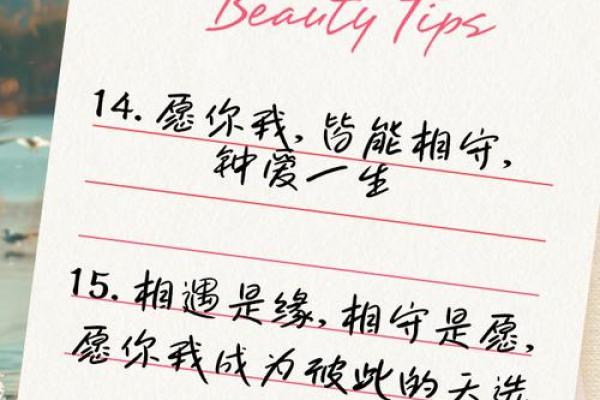 Beauty Tips
14. 愿你我，皆能相守，
钟爱一生
15. 相遇是缘，相守是愿，
愿你我成为彼此的天选